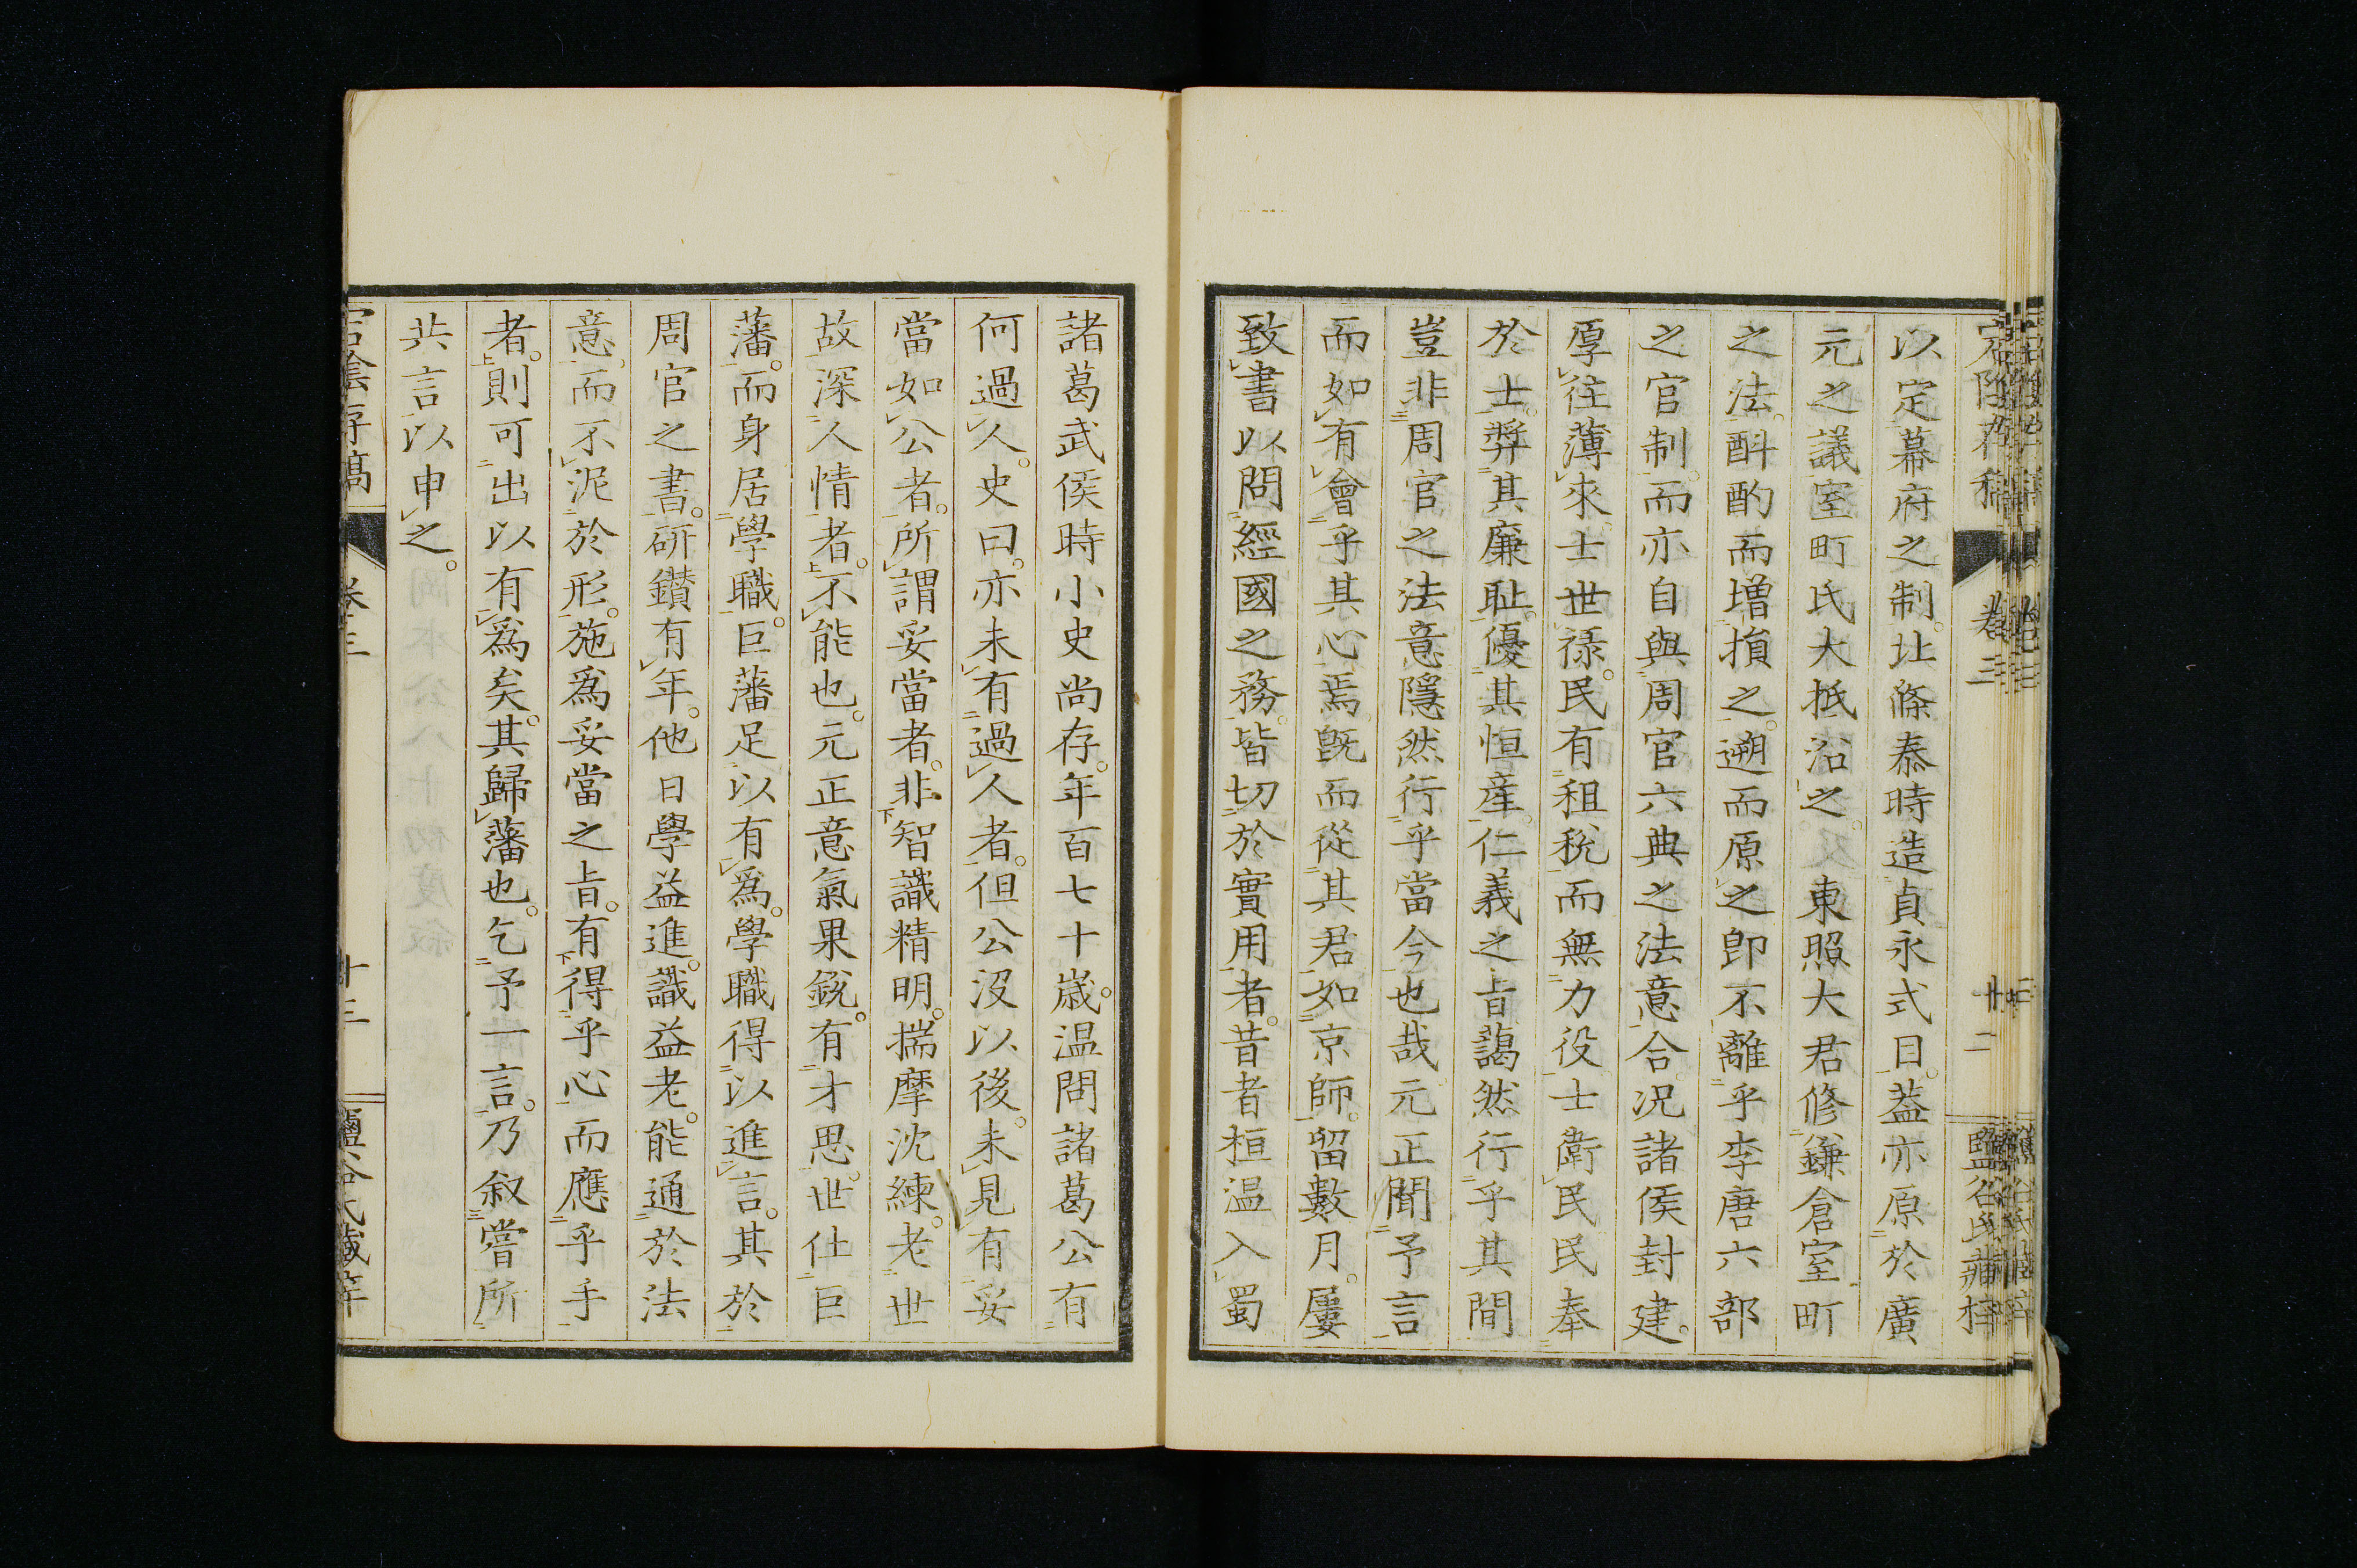 以定幕府之制。北條泰時造貞永式目。蓋亦原於廣
元之議室町氏大抵沿之。東照大君修鎌倉室町
之法。酙酌而増損之。遡而原之卽不離乎李唐六部
之官制。而亦自與周官六典之法意合。况諸侯封建。
厚往薄來。士世祿。民有租稅而無力役士衛民民奉
於士。奬其廉耻。優其恒産。仁義之旨藹然行乎其間
豈非周官之法意隱然行乎當今也哉元正聞予言
而如有會乎其心焉。旣而從其君如京師。留數月。屢
致書以問經國之務。皆切於實用者。昔者桓温入蜀
諸葛武侯時小史尚存。年百七十歳。温問諸葛公有
何過人。史曰。亦未有過人者。但公沒以後。未見有妥
當如公者。所謂妥當者。非智識精明。揣摩沈練。老世
故深人情者。不能也。元正意氣果銳。有才思。世仕巨
藩。而身居學職。巨藩足以有爲。學職得以進言。其於
周官之書。研鑚有年。他日學益進。識益老。能通於法
意。而不泥於形。施爲妥當之旨。有得乎心而應乎手
者。則可出以有爲矣。其歸藩也。乞予一言。乃叙嘗所
共言以申之。
卷三
十二
卷三
十三